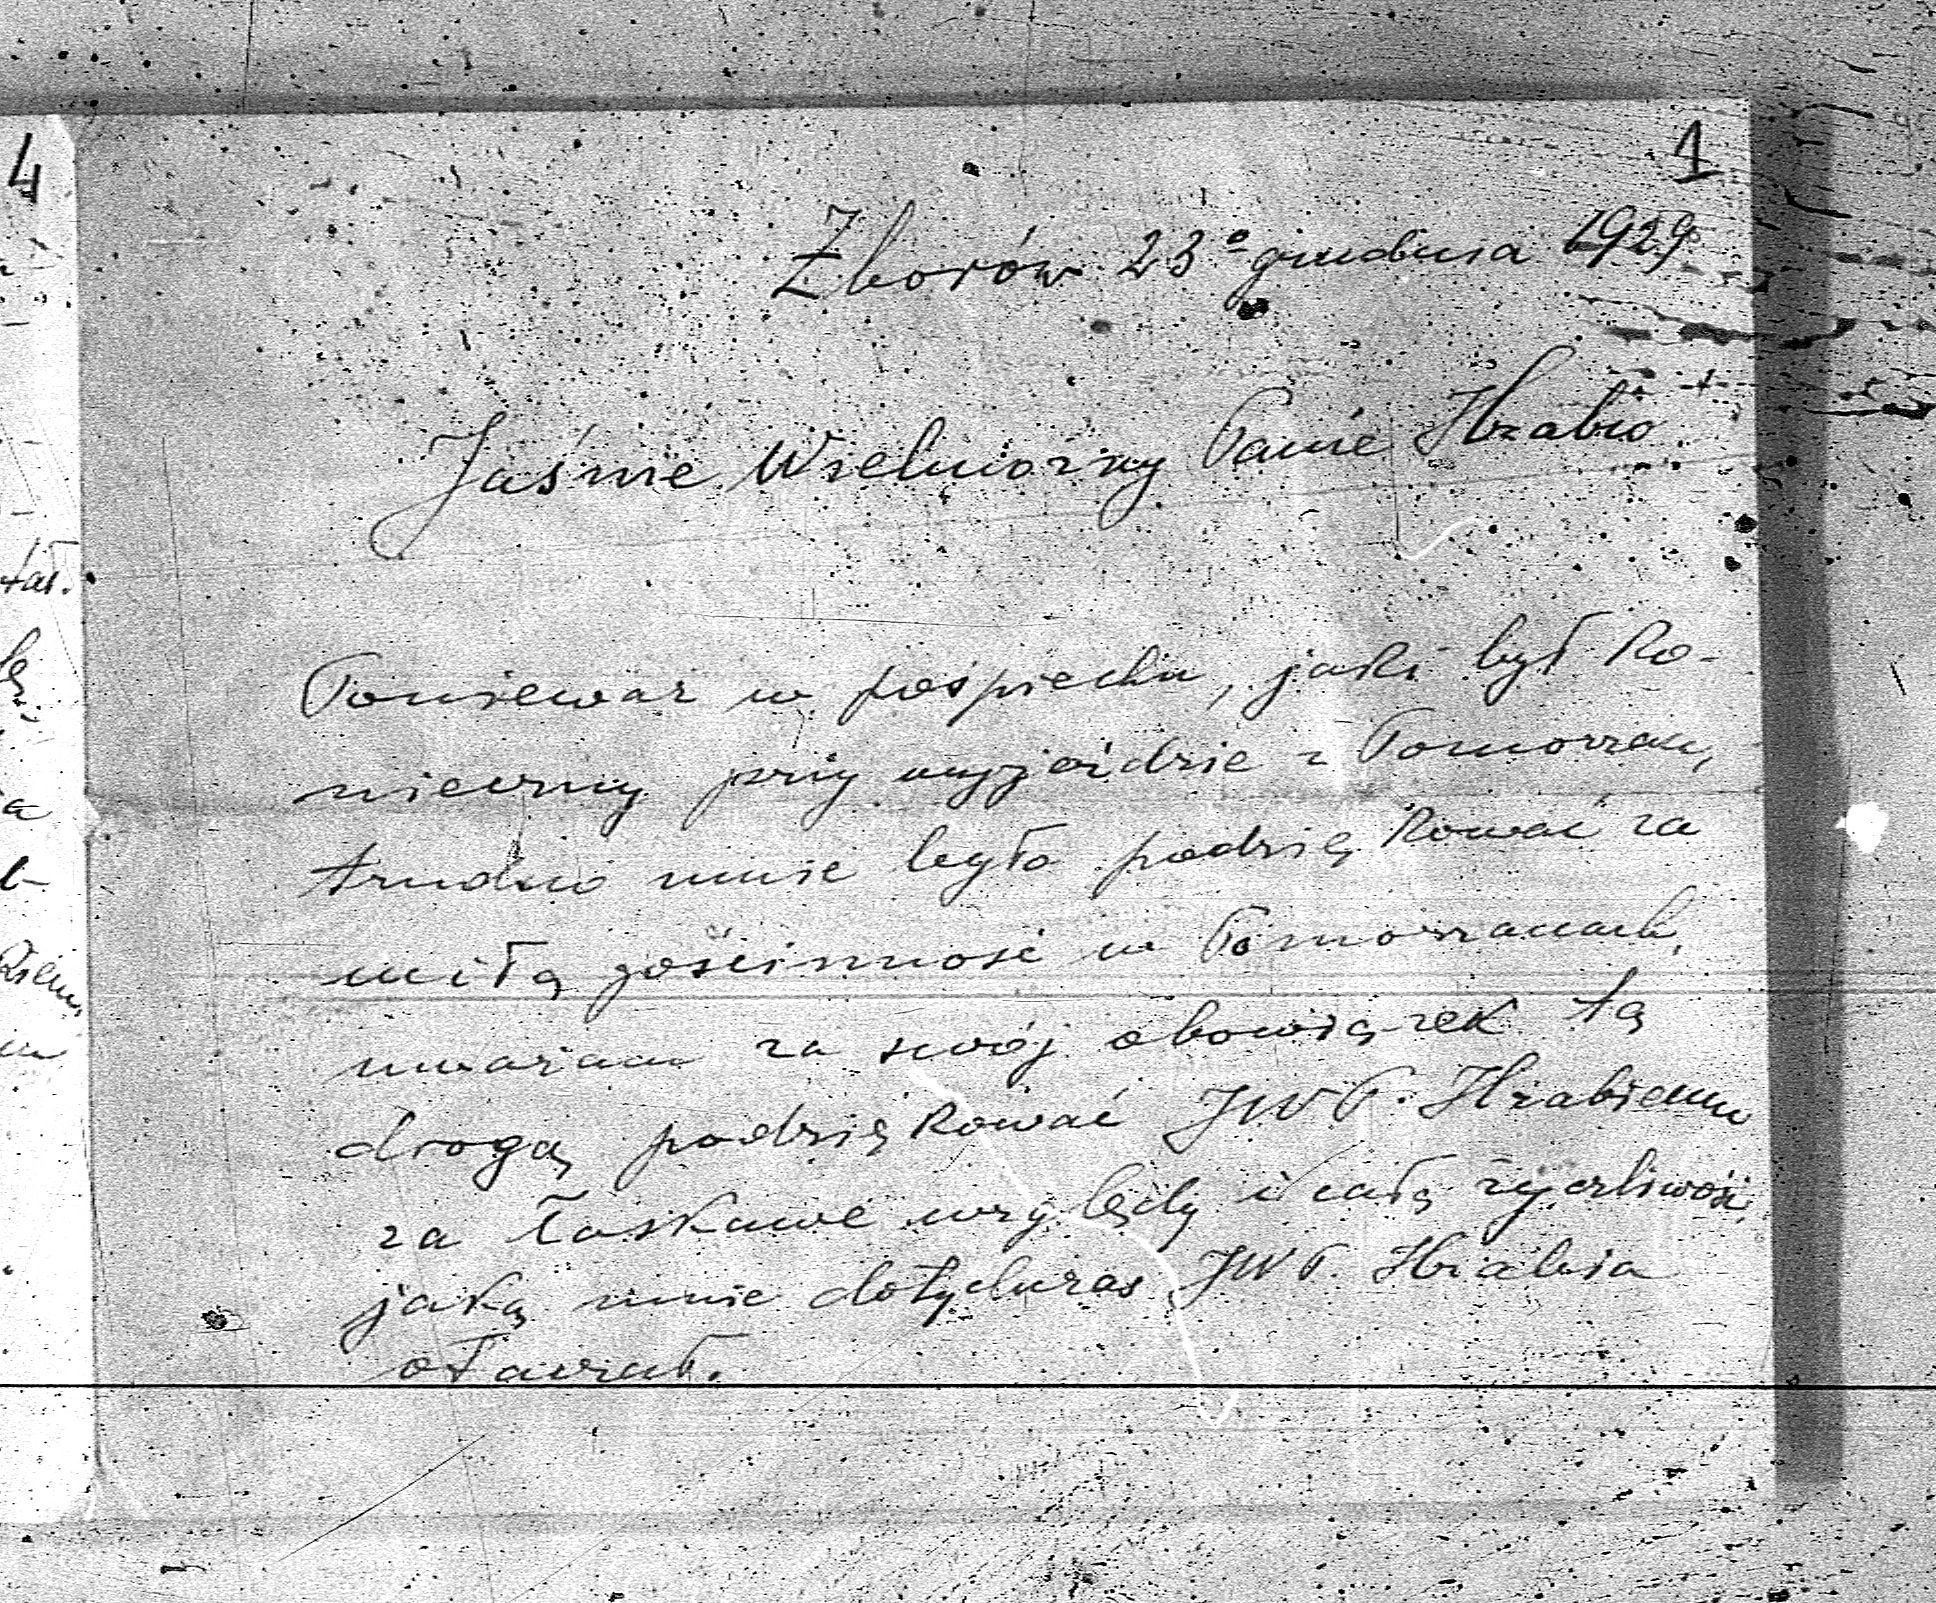 4
1
Zborów 23º grudnia 1929
Jaśnie Wielmożny Panie Hrabio
Ponieważ w pośpiechu, jaki był ko-
nieczny przy wyjeździe z Pomorzan,
trudno mnie było podziękować za
miłą gościnność w Pomorzanach,
uważam za swój obowiązek tą
drogą podziękować JWP. Hrabiemu
za łaskawe względy i całą życzliwość,
jaką mnie dotychczas JWP. Hrabia
otaczał.